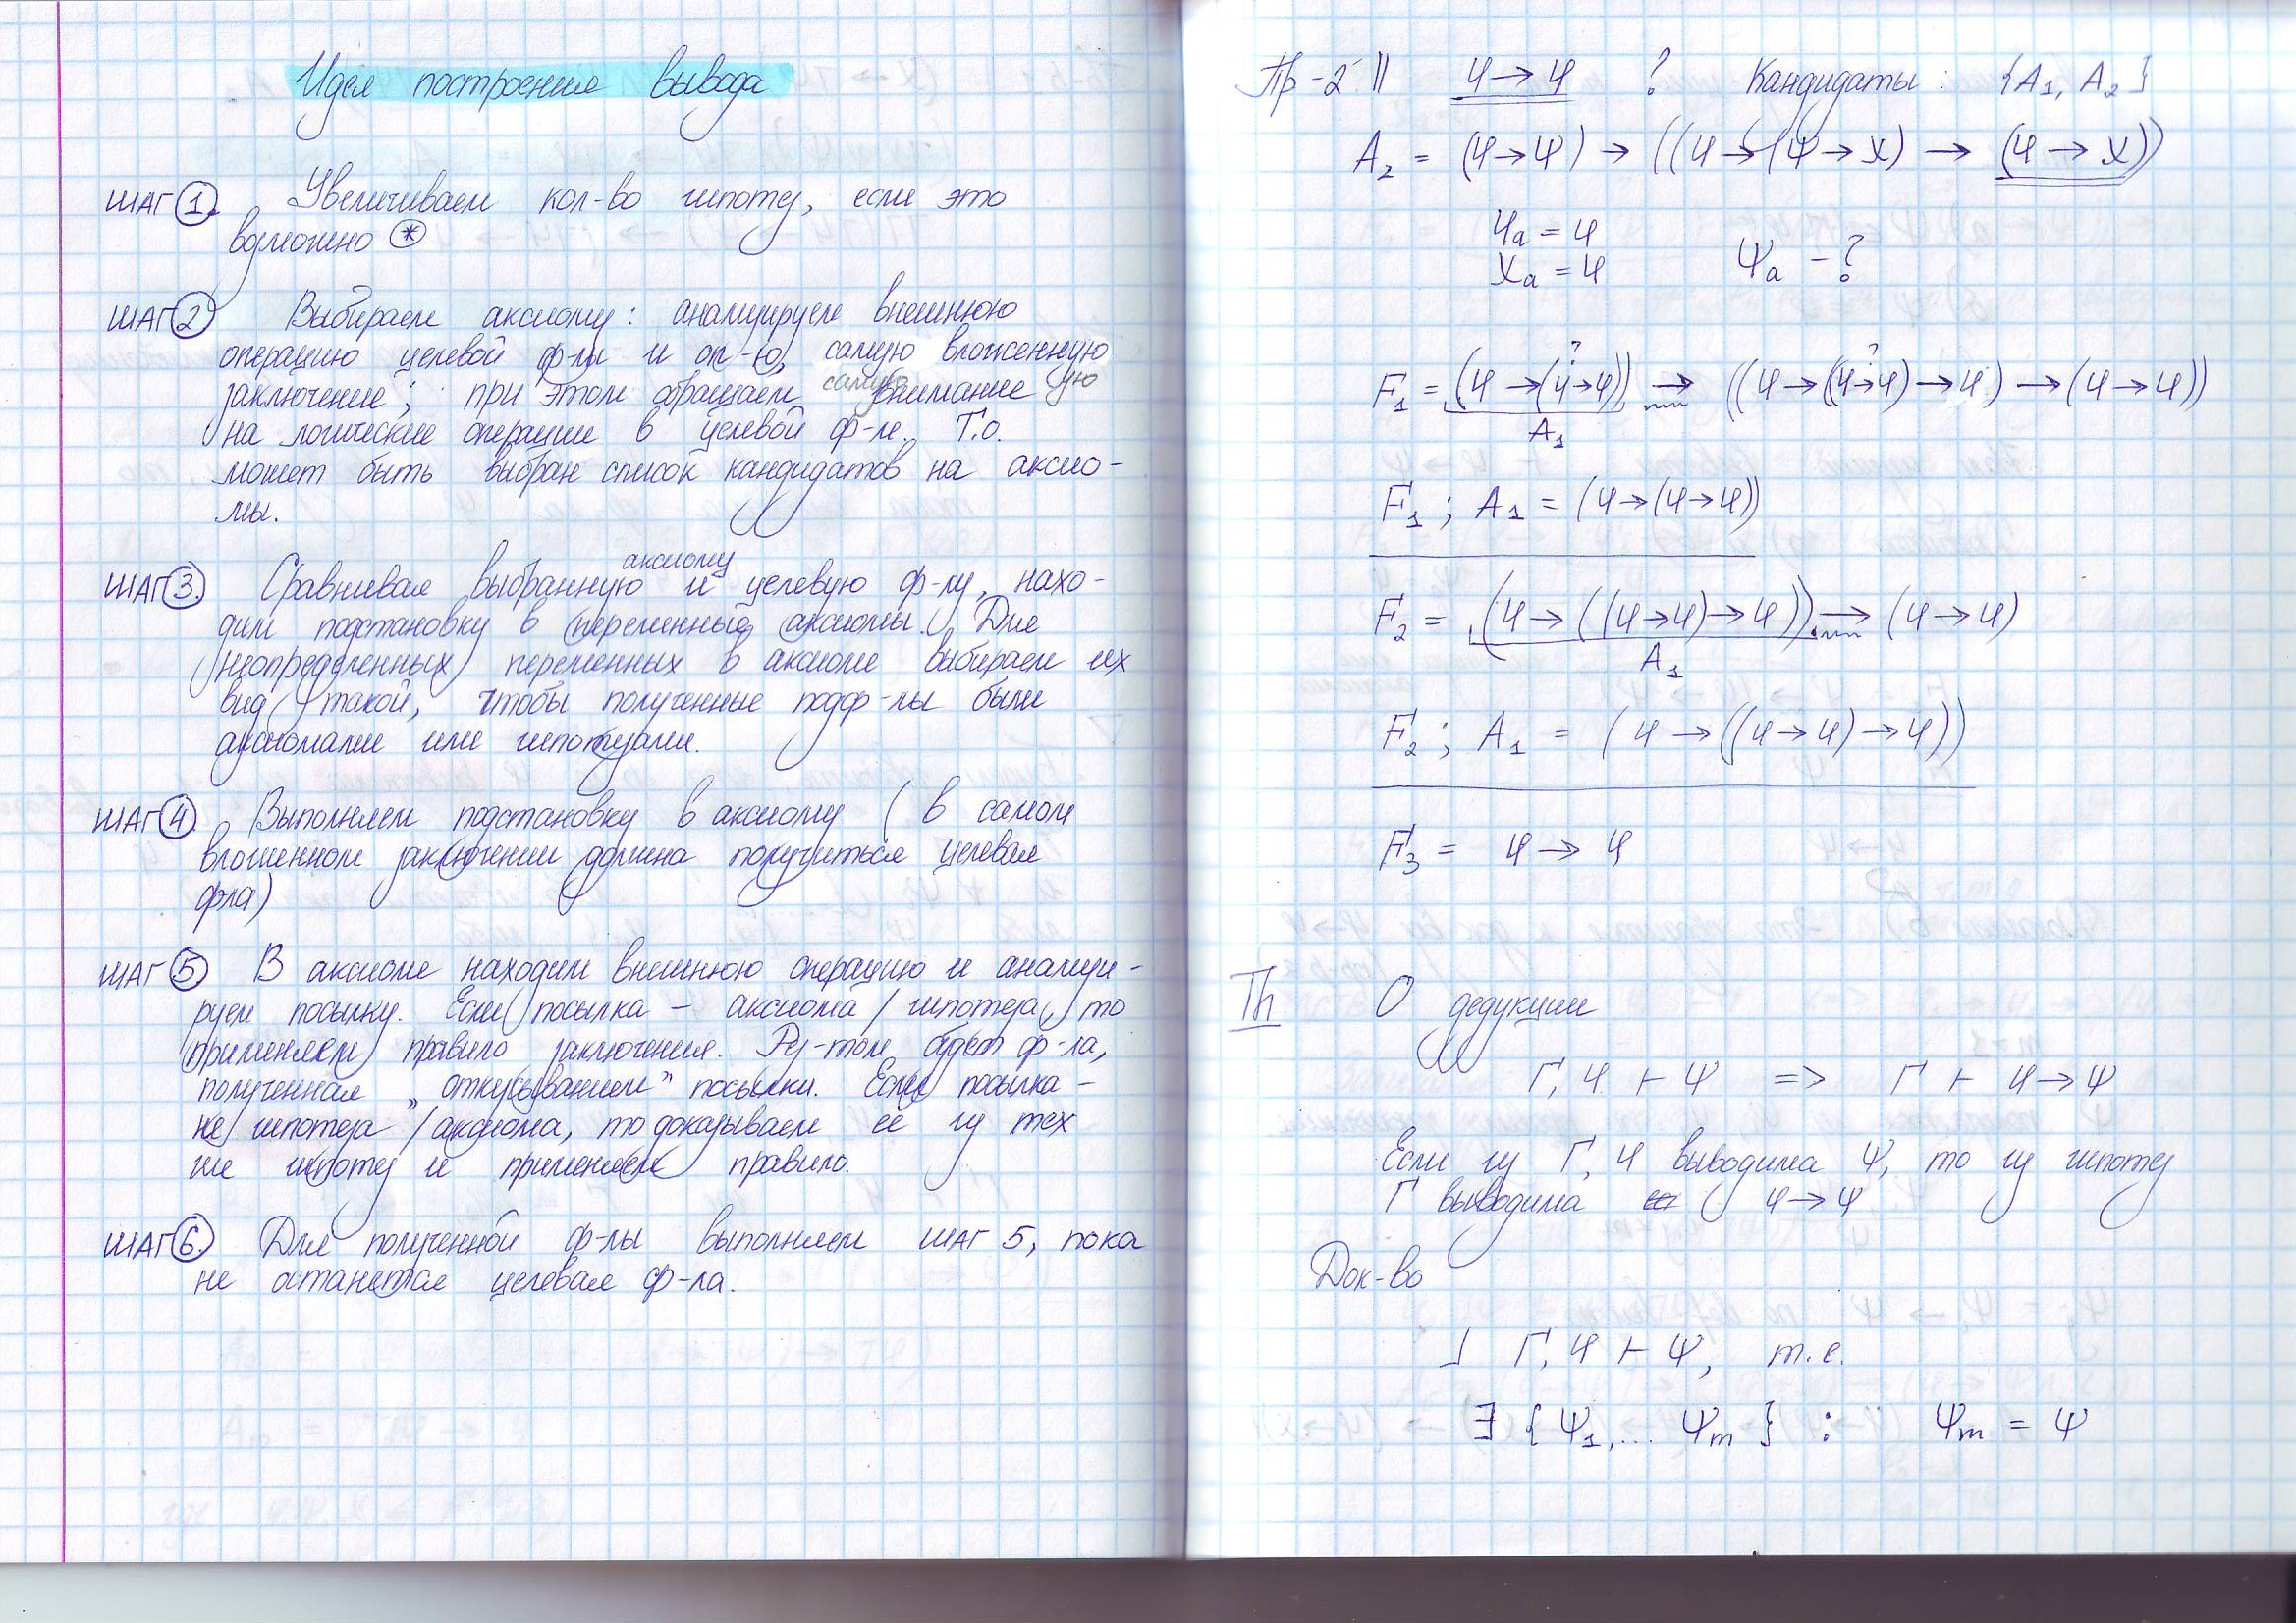 Идея построения вывода
ШАГ 1. Увеличиваем кол-во гипотез, если это
возможно (*)
ШАГ 2. Выбираем аксиому: анализируем внешнюю
операцию целевой ф-лы и оп-ю, самую вложенную
заключение; при этом обращаем внимание
на логические операции в целевой ф-ле. Т.о.
может быть выбран список кандидатов на аксио-
мы.
аксиому
ШАГ 3. Сравнивая выбранную и целевую ф-лу, нахо-
дим подстановку в переменные аксиомы. Для
неопределенных переменных в аксиоме выбираем их
вид такой, чтобы полученные подф-лы были
аксиомами или гипотезами.
ШАГ 4. Выполняем подстановку в аксиому (в самом
вложенном заключении должна получиться целевая
фла)
ШАГ 5. В аксиоме находим внешнюю операцию и анализи-
руем посылку. Если посылка - аксиома / гипотеза, то
применяем правило заключения. Рез-том будет ф-ла,
полученная „откусыванием" посылки. Если посылка -
не гипотеза / аксиома, то доказываем её из тех
же гипотез и применяем правило.
ШАГ 6. Для полученной ф-лы выполняем ШАГ 5, пока
не останется целевая ф-ла.
Пр-2 || φ → φ ? Кандидаты: {A₁, A₂}
A₂ = (φ→ψ) → ((φ→(ψ→χ) → (φ→χ))
φₐ = φ
χₐ = φ ψₐ - ?
F₁ = (φ→(φ→φ)) → ((φ→((φ→φ)→φ) → (φ→φ))
A₁
F₁ ; A₁ = (φ→(φ→φ))
F₂ = (φ→((φ→φ)→φ)) → (φ→φ)
A₁
F₂ ; A₁ = (φ→((φ→φ)→φ))
F₃ = φ → φ
Th О дедукции
Γ, φ ⊢ ψ => Γ ⊢ φ→ψ
Если из Γ, φ выводима ψ, то из гипотез
Γ выводима φ→ψ
Док-во
⅃ Γ, φ ⊢ ψ, т.е.
∃ {ψ₁,... ψm} : ψm = ψ